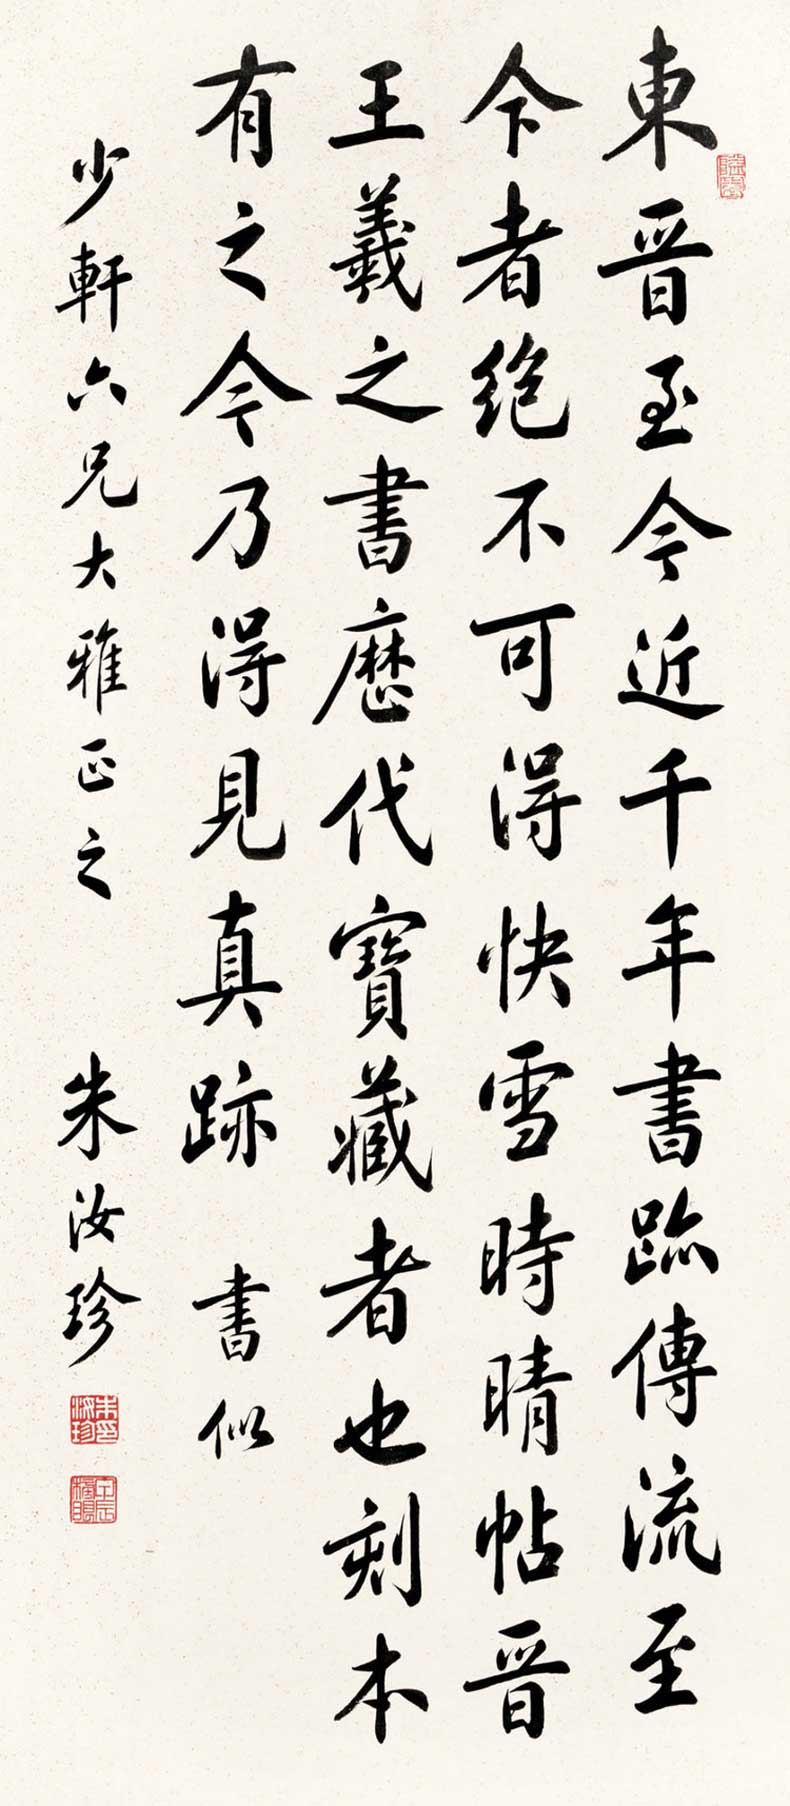 東晉至今近千年書跡傳流至
今者絶不可得快雪時晴帖晉
王羲之書歷代寶藏者也刻本
有之今乃得見真跡 書似
少軒六兄大雅正之 朱汝珍